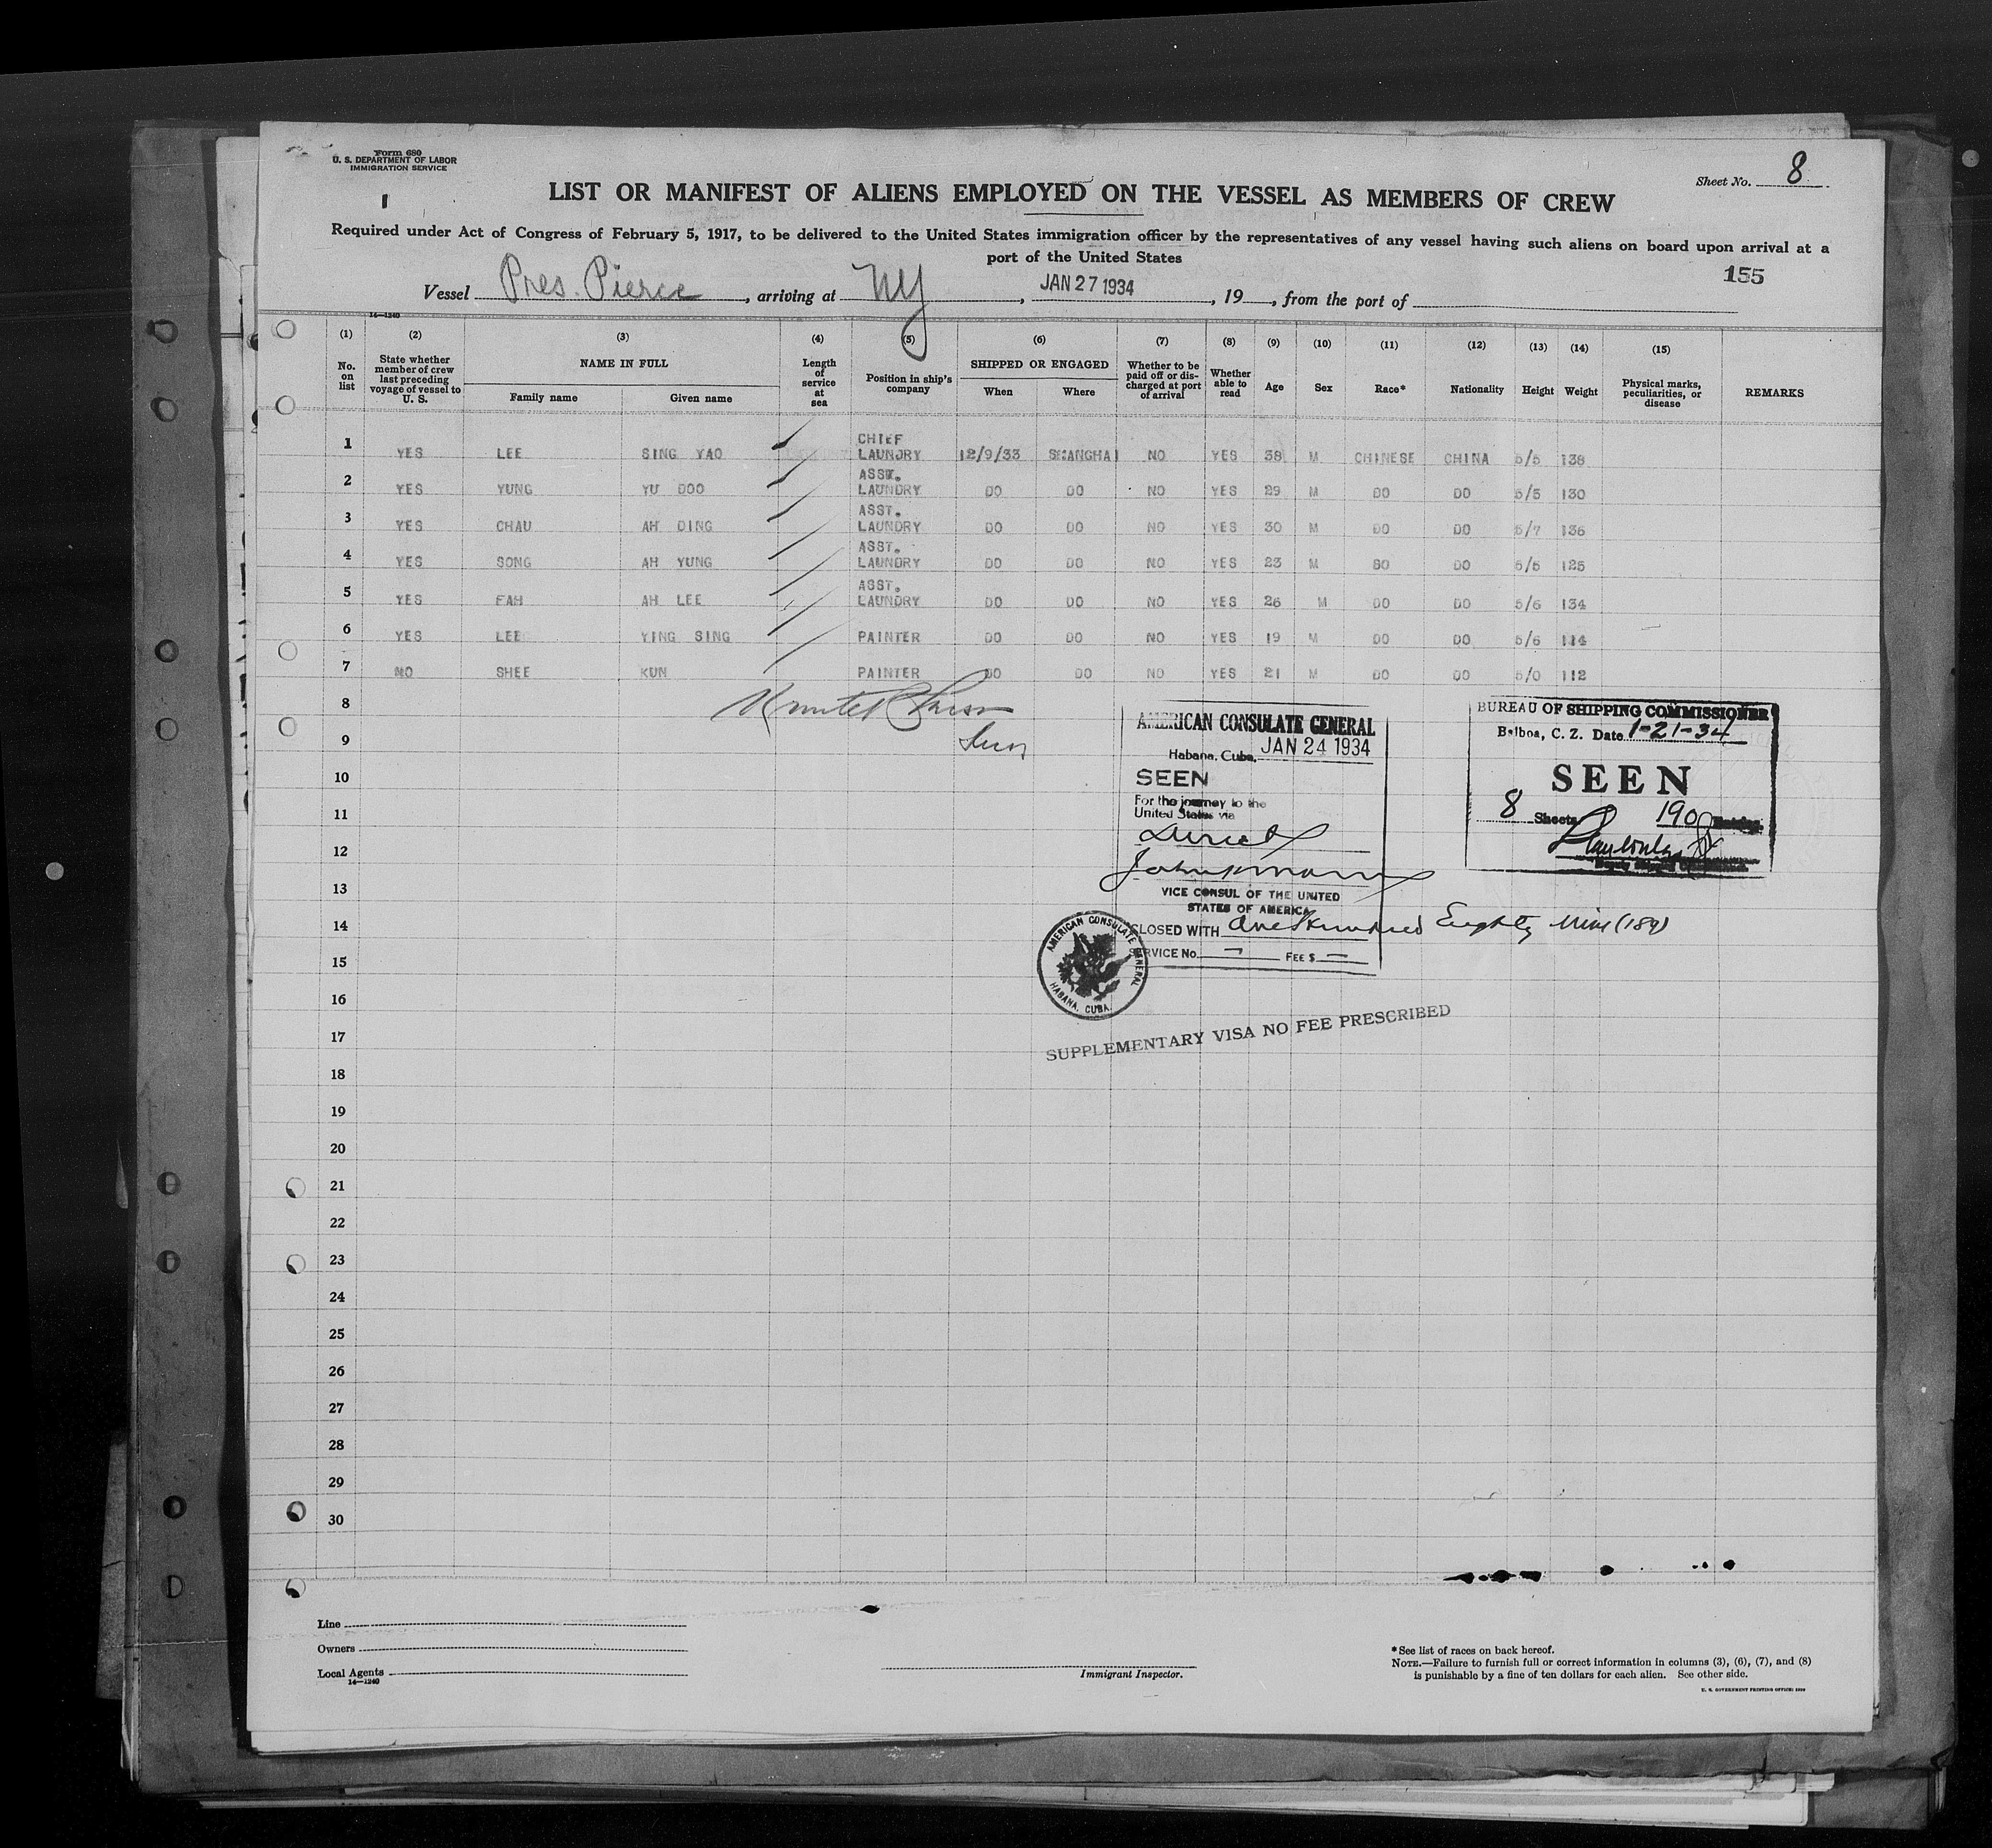 Form 680
U. S. DEPARTMENT OF LABOR
IMMIGRATION SERVICE
Sheet No. 8
LIST OR MANIFEST OF ALIENS EMPLOYED ON THE VESSEL AS MEMBERS OF CREW
Required under Act of Congress of February 5, 1917, to be delivered to the United States immigration officer by the representatives of any vessel having such aliens on board upon arrival at a
port of the United States
155
Vessel Pres. Pierce, arriving at NY, JAN 27 1934, 19, from the port of
14—1240
(1) (2) (3) (4) (5) (6) (7) (8) (9) (10) (11) (12) (13) (14) (15)
No. on list State whether member of crew last preceding voyage of vessel to U. S. NAME IN FULL Family name Given name Length of service at sea Position in ship's company SHIPPED OR ENGAGED When Where Whether to be paid off or discharged at port of arrival Whether able to read Age Sex Race* Nationality Height Weight Physical marks, peculiarities, or disease REMARKS
1 YES LEE SING YAO CHIEF LAUNDRY 12/9/33 SHANGHAI NO YES 38 M CHINESE CHINA 5/5 138
2 YES YUNG YU DOO ASST. LAUNDRY DO DO NO YES 29 M DO DO 5/5 130
3 YES CHAU AH DING ASST. LAUNDRY DO DO NO YES 30 M DO DO 5/7 136
4 YES SONG AH YUNG ASST. LAUNDRY DO DO NO YES 23 M SO DO 5/5 125
5 YES FAH AH LEE ASST. LAUNDRY DO DO NO YES 26 M DO DO 5/6 134
6 YES LEE YING SING PAINTER DO DO NO YES 19 M DO DO 5/6 114
7 NO SHEE KUN PAINTER DO DO NO YES 21 M DO DO 5/0 112
8
9
10
11
12
13
14
15
16
17
18
19
20
21
22
23
24
25
26
27
28
29
30
AMERICAN CONSULATE GENERAL
Habana, Cuba, JAN 24 1934
SEEN
For the journey to the
United States via
VICE CONSUL OF THE UNITED
STATES OF AMERICA
CLOSED WITH One Hundred Eighty Nine (189)
SERVICE No. — FEE $ —
AMERICAN CONSULATE GENERAL
HABANA, CUBA.
SUPPLEMENTARY VISA NO FEE PRESCRIBED
BUREAU OF SHIPPING COMMISSIONER
Balboa, C. Z. Date 1-21-34
SEEN
8 Sheets 190
Line
Owners
Local Agents
14—1240
Immigrant Inspector.
*See list of races on back hereof.
NOTE.—Failure to furnish full or correct information in columns (3), (6), (7), and (8)
is punishable by a fine of ten dollars for each alien. See other side.